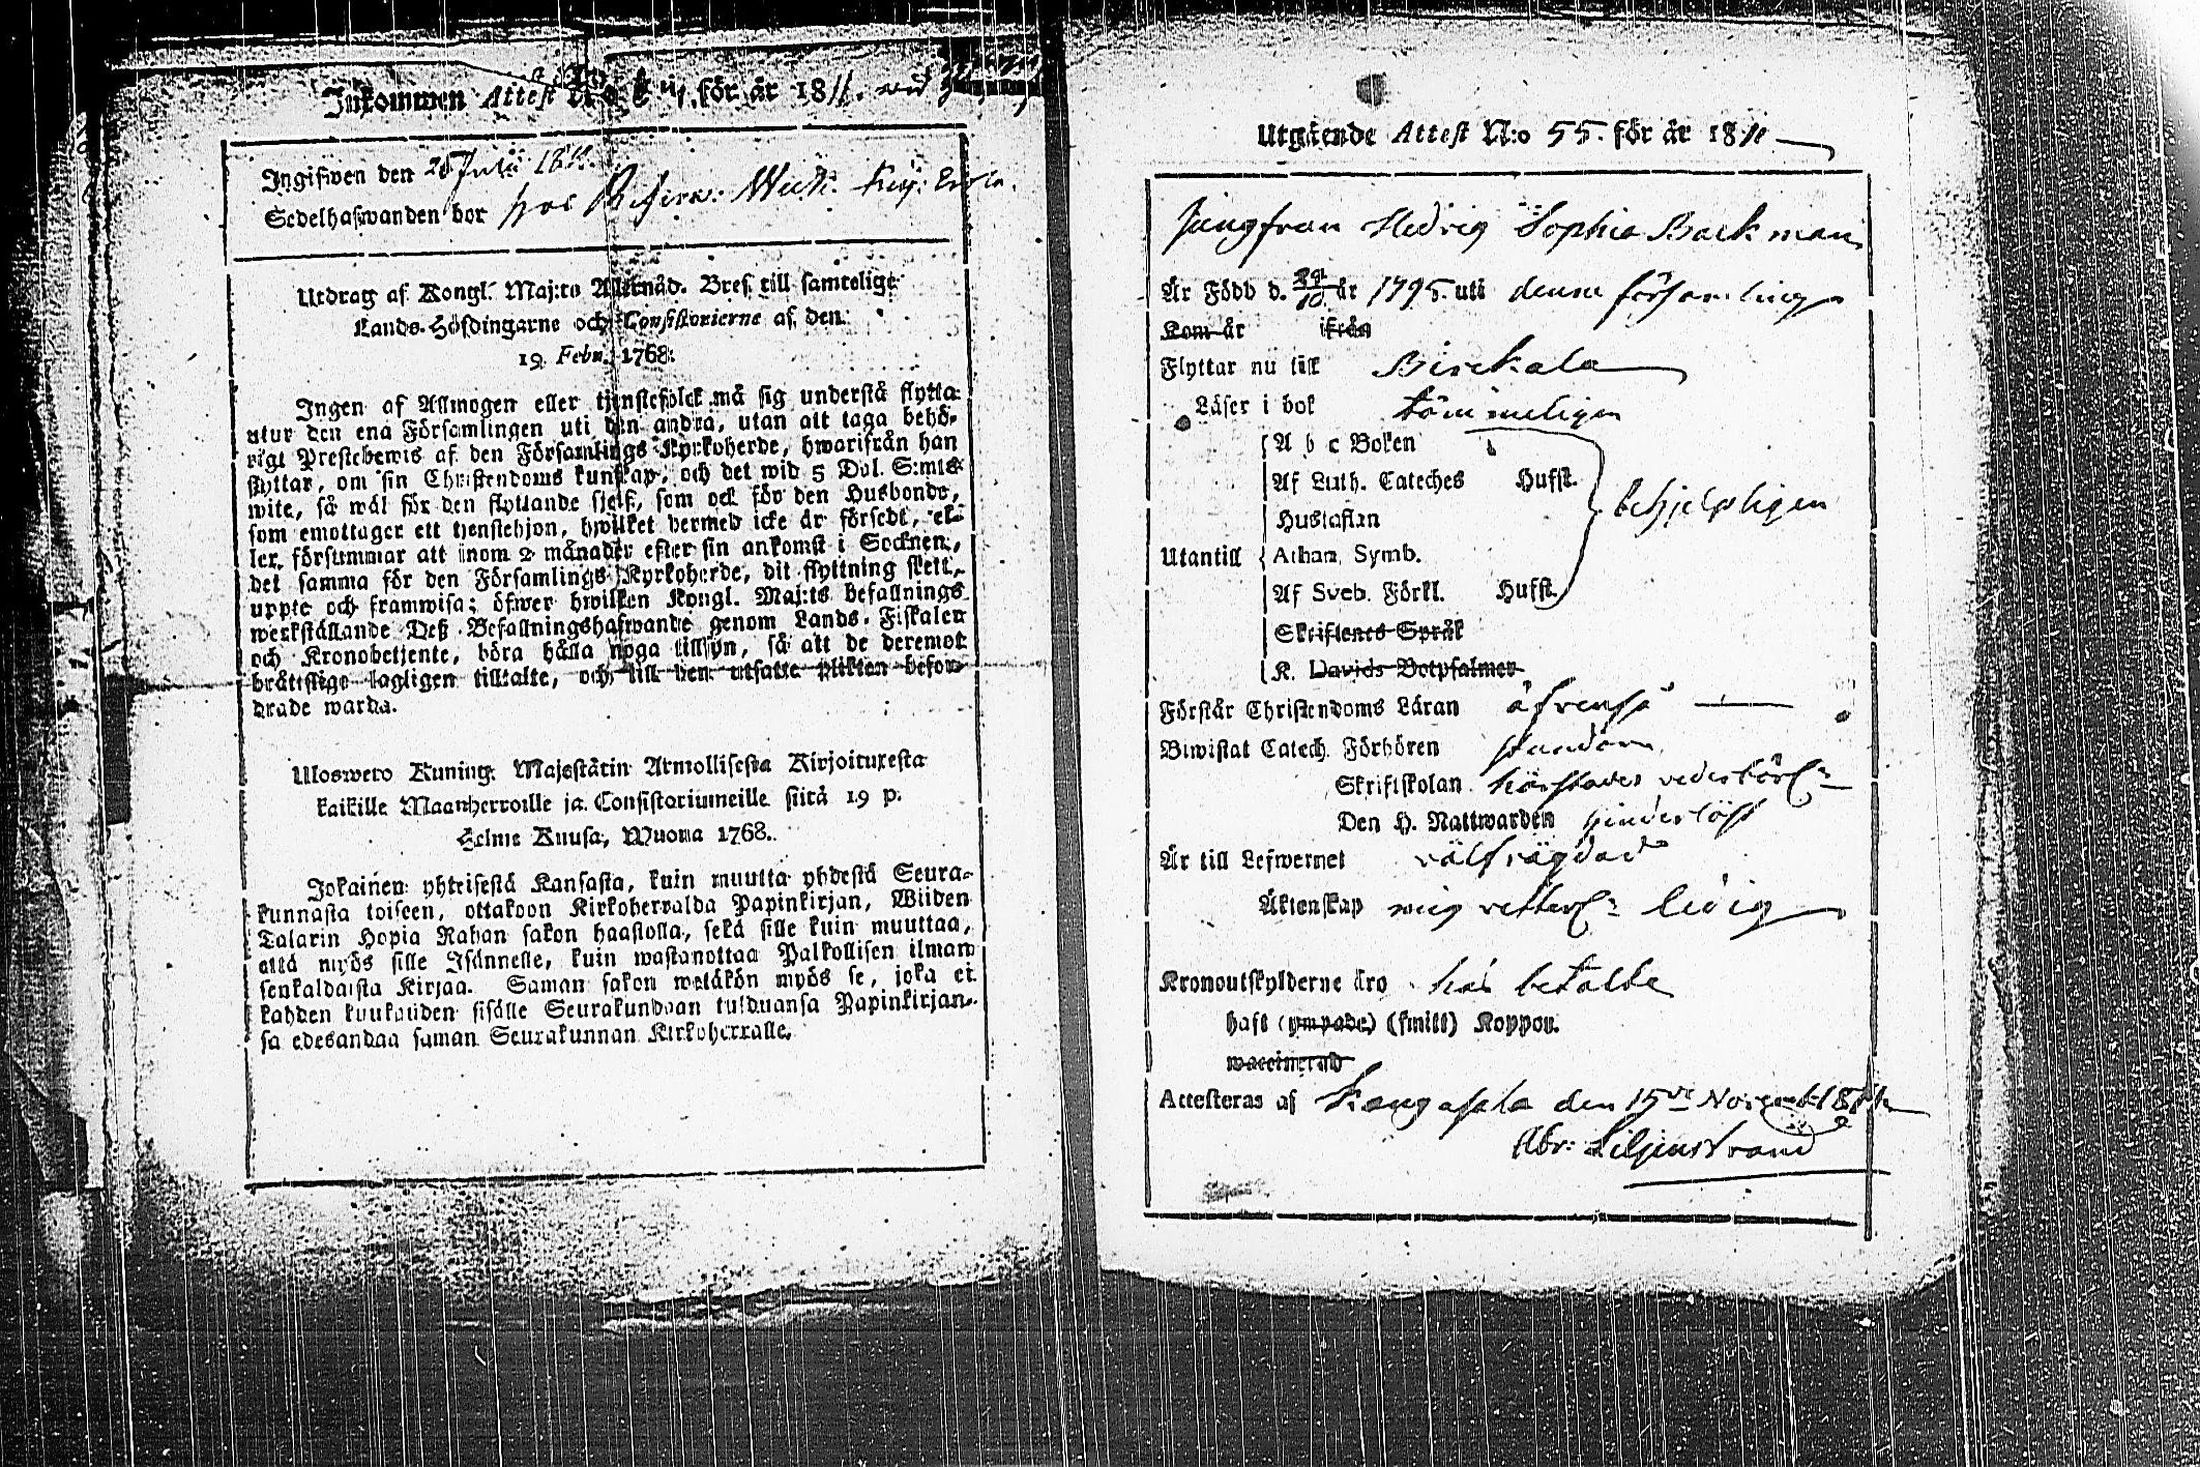 Inkommen Attest N:o för år 1811. wid
Ingifwen den Julii 1811.
Sedelhafwanden bor hos
Utdrag af Kongl. Maj:ts Allernåd. Bref till samtelige
Lands-Höfdingarne och Consistorierne af den
19 Febr. 1768.
Ingen af Allmogen eller tjenstefolck må sig understå flytta
utur den ena Församlingen uti den andra, utan att taga behö-
rigt Prestebewis af den Församlings Kyrkoherde, hwarifrån han
flyttar, om sin Christendoms kunskap, och det wid 5 Dal. S:mts
wite, så wäl för den flyttande sjelf, som ock för den Husbonde,
som emottager ett tjenstehjon, hwilket dermed icke är försedt, el-
ler försummar att inom 2 månader efter sin ankomst i Socknen,
det samma för den Församlings Kyrkoherde, dit flyttning skett,
uppte och framwisa; öfwer hwilken Kongl. Maj:ts befallnings
werkställande Deß Befallningshafwande genom Lands-Fiskaler
och Kronobetjente, böra hålla noga tillsyn, så att de deremot
bråttslige lagligen tilltalte, och till den utsatte plikten befor-
drade warda.
Uloswero Kuning. Majestätin Armollisesta Kirjoituxesta
kaikille Maanherroille ja Consistoriumeille siitä 19 p.
Helme Kuusa, Wuonna 1768.
Jokainen yhteisestä Kansasta, kuin muutta yhdestä Seura-
kunnasta toiseen, ottakoon Kirkoherralda Papinkirjan, Wiiden
Talarin Hopia Rahan sakon haastolla, sekä sille kuin muuttaa,
että myös sille Isännelle, kuin wastanottaa Palkollisen ilman
senkaldaista Kirjaa. Saman sakon wetäkön myös se, joka ei
kahden kuukauden sisälle Seurakundaan tulduansa Papinkirjan-
sa edesandaa saman Seurakunnan Kirkoherralle.
Utgående Attest N:o 55. för år 1811
Jungfrun Hedvig Sophia Backman
Är Född d. 29/10 år 1795. uti denna församling
Kom år ifrån
Flyttar nu till Birckala
Läser i bok tämmeligen
A b c Boken
Af Luth. Cateches Hufst.
Hustaflan behjelpligen
Utantill Athan. Symb.
Af Sveb. Förkl. Hufst.
Skriftenes Språk
K. Davids Botpsalmer
Förstår Christendoms Läran äfvenså
Biwistat Catech. Förhören
Skriftskolan
Den H. Nattwarden hinderlöst
Är till Lefwernet välfrägdad
Äktenskap mig vetterl: ledig
Kronoutskylderne äro här betalde
haft (ympade) (smitt) Koppor.
waccinerad
Attesteras af Kangasala den 15de Novemb. 1811
Abr: Liljenstrand